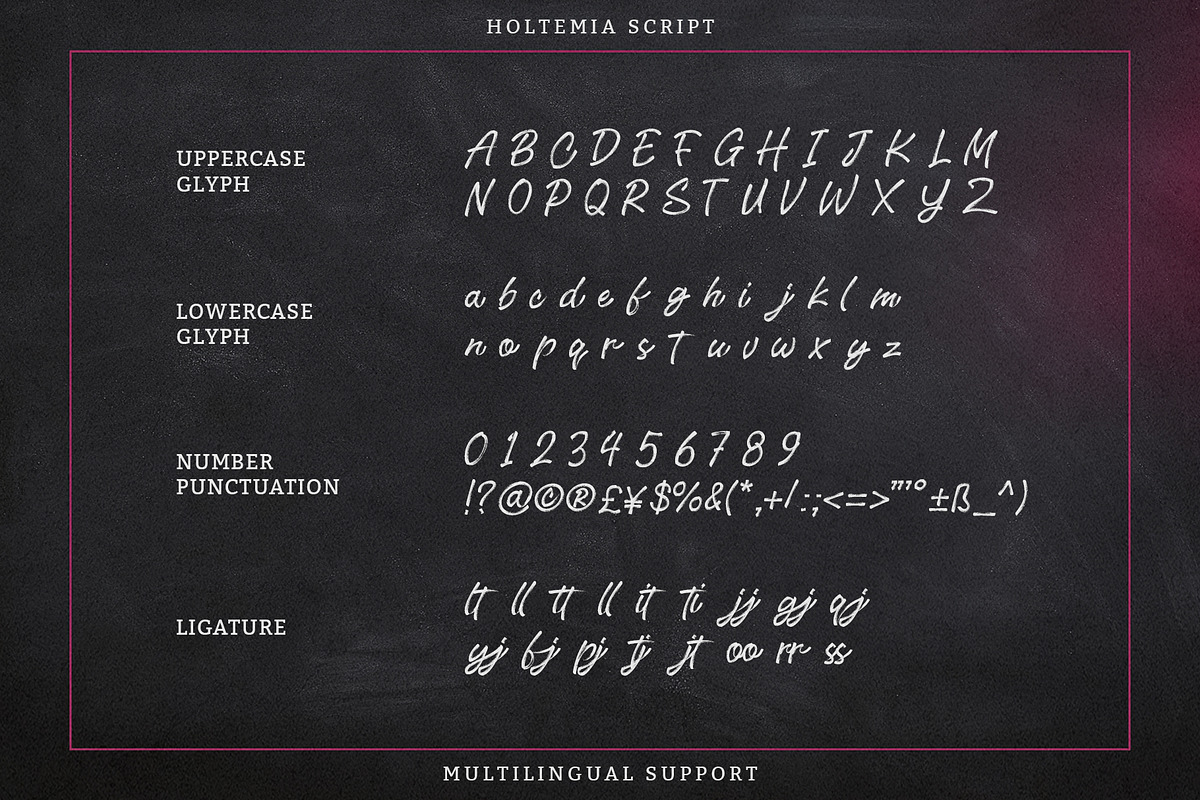 HOLTEMIA SCRIPT
UPPERCASE
GLYPH
A B C D E F G H I J K L M
N O P Q R S T U V W X Y Z
LOWERCASE
GLYPH
a b c d e f g h i j k l m
n o p q r s t u v w x y z
NUMBER
PUNCTUATION
0 1 2 3 4 5 6 7 8 9
!?@©®£¥$%&(*,+/:;<=>"'°±ß_^)
LIGATURE
lt ll tt ll it ti jj gj qj
yj fj pj tj jt oo rr ss
MULTILINGUAL SUPPORT